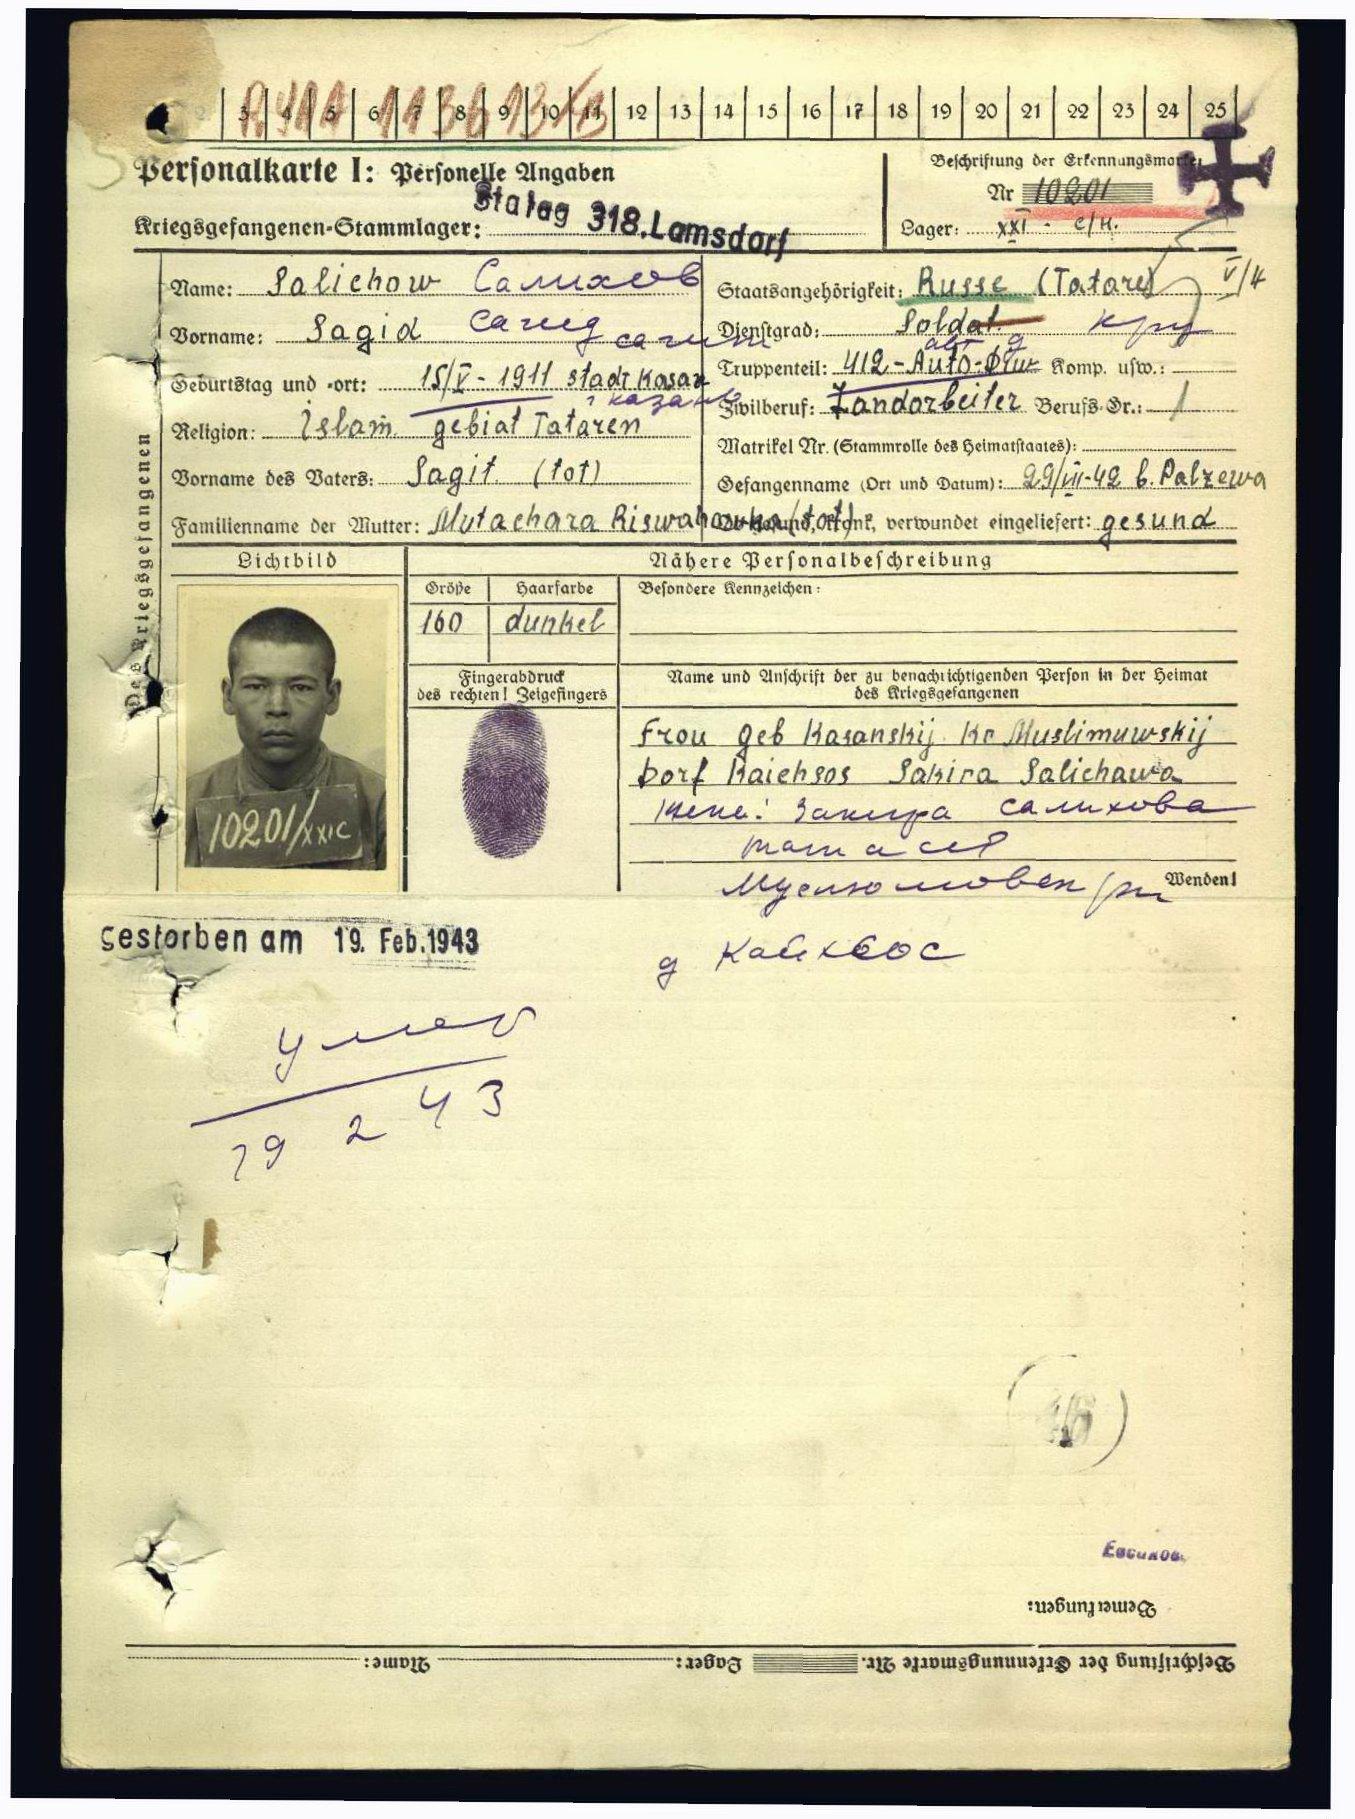 3 4 5 6 7 8 9 10 11 12 13 14 15 16 17 18 19 20 21 22 23 24 25
Personalkarte I: Personelle Angaben
Beschriftung der Erkennungsmarke
Nr 10201
Kriegsgefangenen-Stammlager: Stalag 318. Lamsdorf
Lager: XXI - C/H.
Des Kriegsgefangenen
Name: Salichow Салихов
Staatsangehörigkeit: Russe (Tatare) V/H
Vorname: Sagid Сагид Сагит
Dienstgrad: Soldat кр
Geburtstag und -ort: 15/V - 1911 stadt Kasan
г Казань
Truppenteil: 412-Auto- Komp. usw.:
Zivilberuf: Landarbeiter Berufs-Gr.: 1
Religion: Islam gebiat Tataren
Matrikel Nr. (Stammrolle des Heimatstaates):
Vorname des Vaters: Sagit (tot)
Gefangenname (Ort und Datum): 29/VII-42 b. Palzewa
Familienname der Mutter: Mutachara Riswanowka (tot)
Ob gesund, krank, verwundet eingeliefert: gesund
Lichtbild
Nähere Personalbeschreibung
Größe Haarfarbe Besondere Kennzeichen:
160 dunkel
Fingerabdruck
des rechten! Zeigefingers
Name und Anschrift der zu benachrichtigenden Person in der Heimat
des Kriegsgefangenen
Frou geb Kasanskij Kr Muslimuwskij
Dorf Kaichsos Sakira Salichawa
жена: Закира Салихова
10201/XXIC
Wenden!
gestorben am 19. Feb. 1943
д Кайхсос
умер
19 2 43
16
Евсиков
Bemerkungen:
Beschriftung der Erkennungsmarke Nr. Lager: Name: